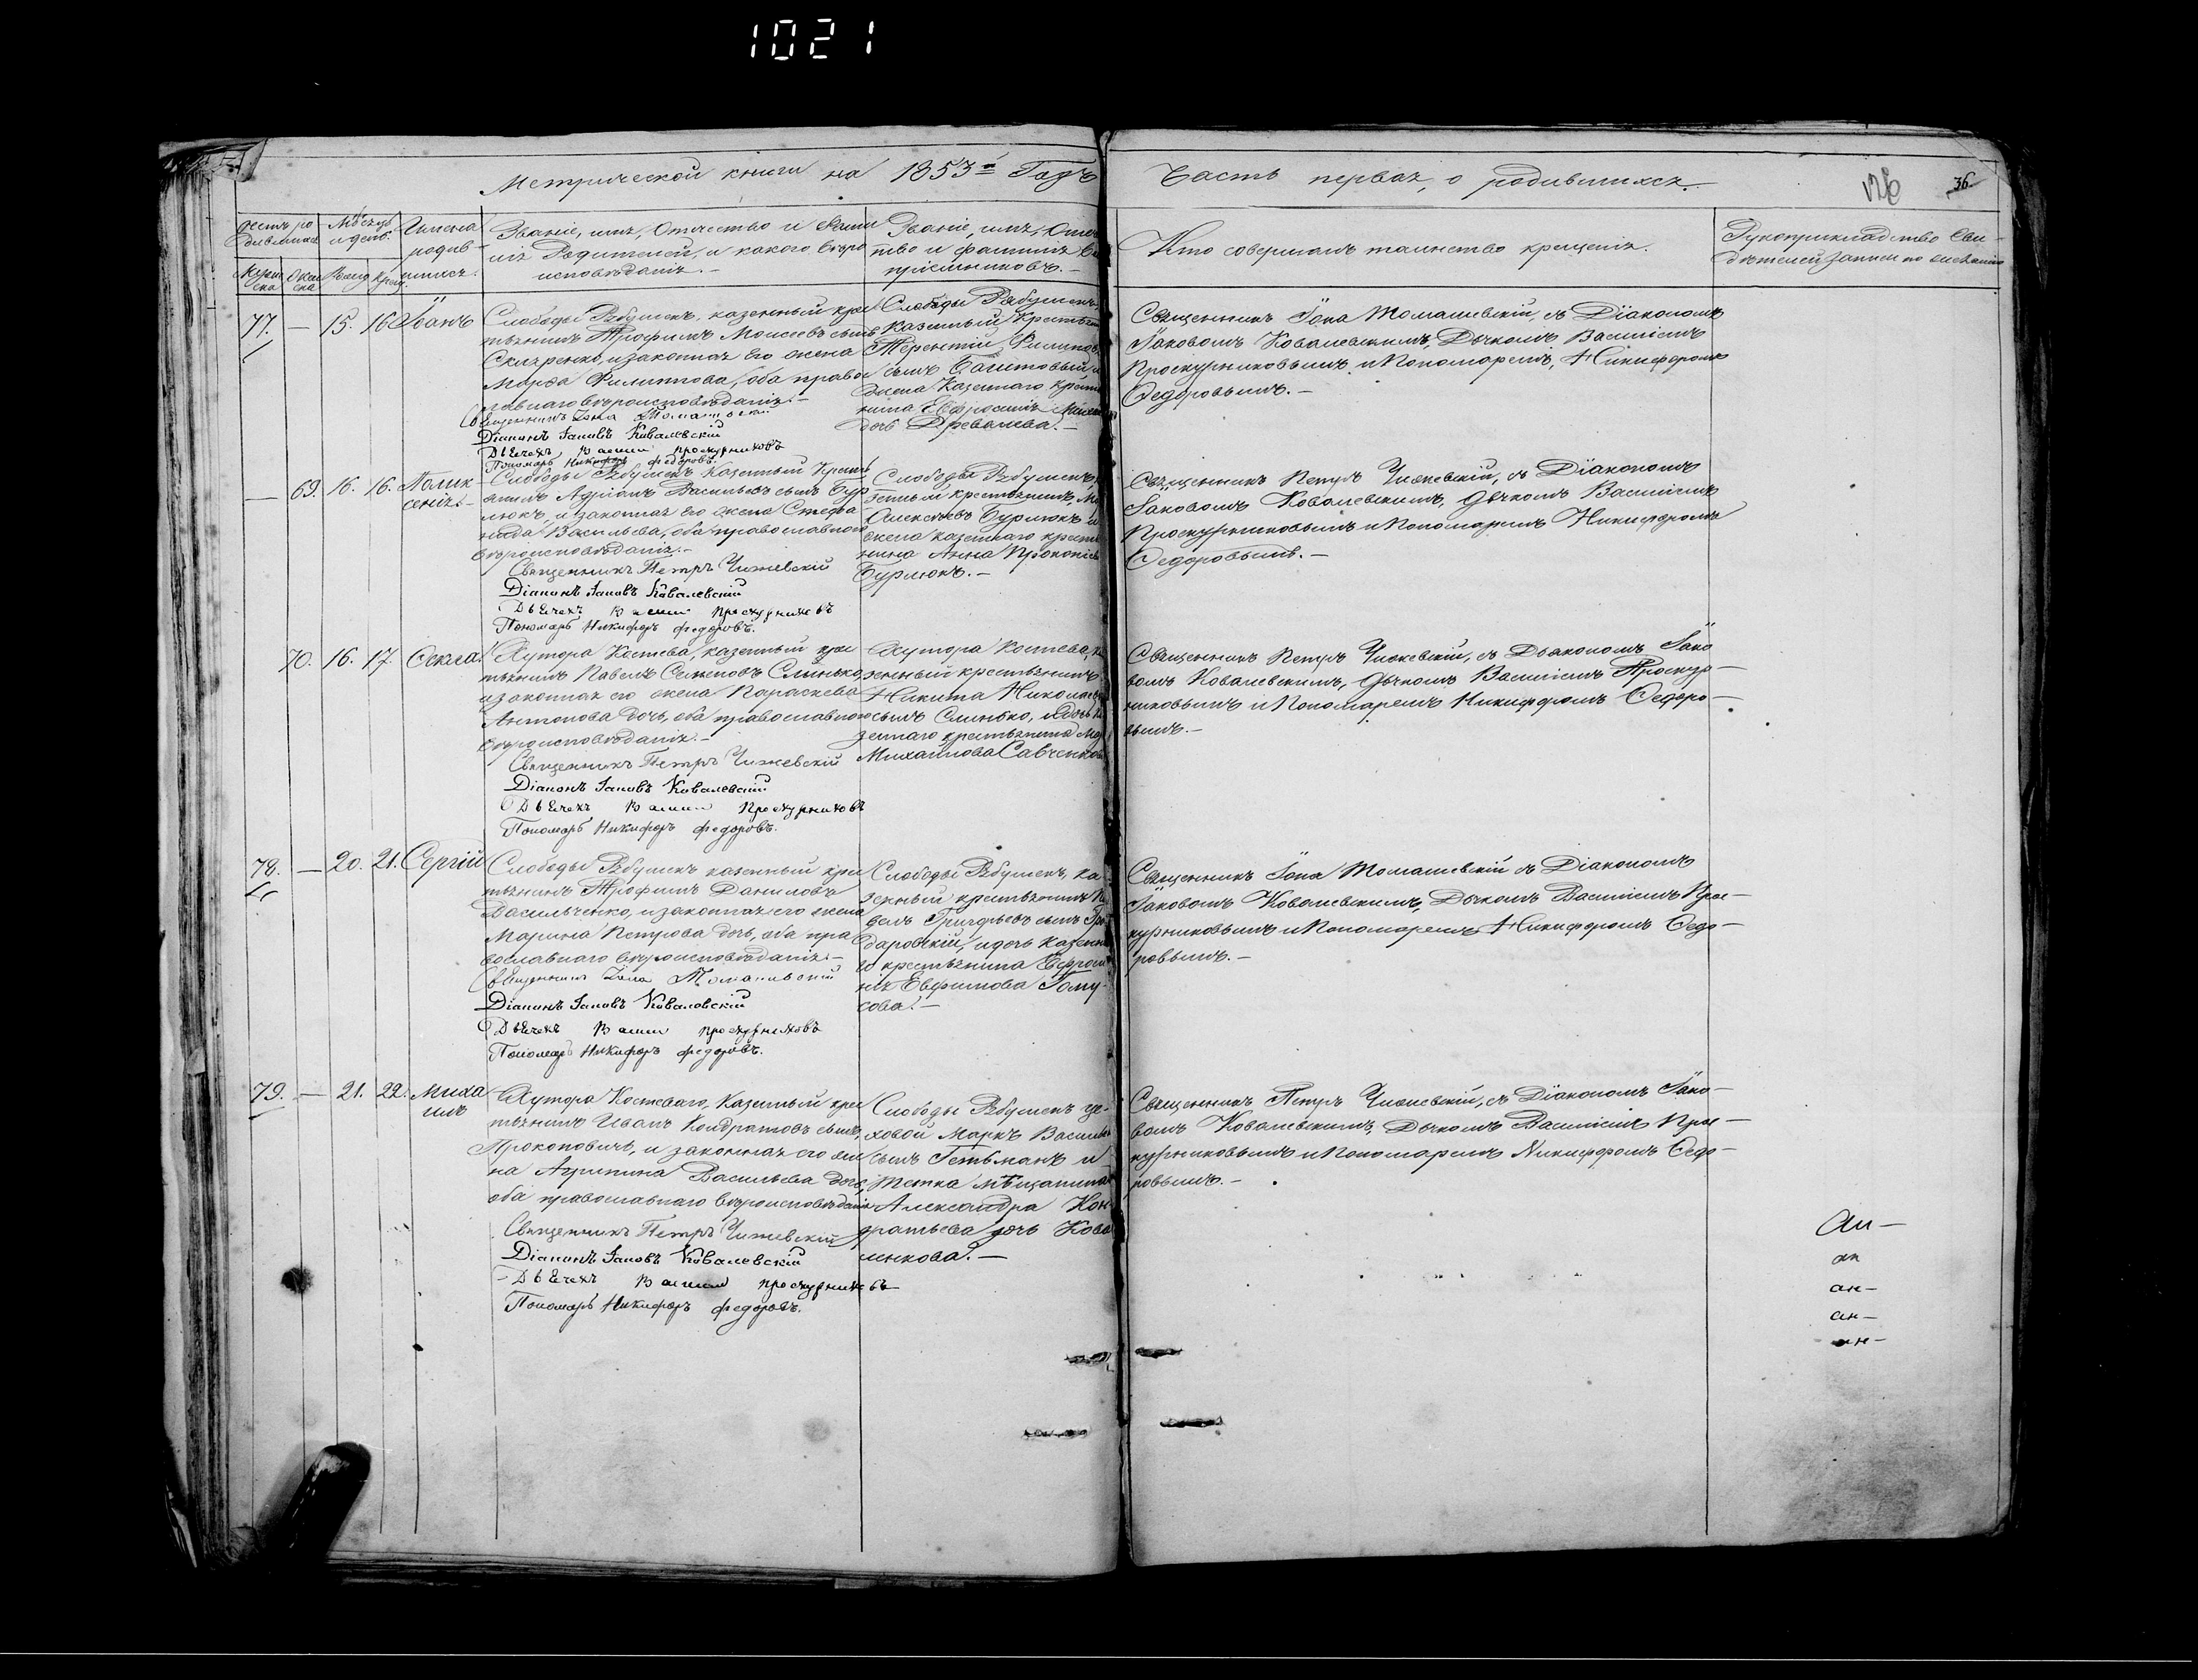 1021
Метрической книги на 1853й Годъ
Часть первая, о родившихся.
36.
Мѣсяцъ и день.
Имена родив-
шихся.
Званіе, имя, Отчество и Фами
лія Родителей, и какого вѣро
исповѣданія.
Званіе, имя, Отче
тво и фамилія
пріемниковъ.
Кто совершалъ таинство крещенія.
Рукоприкладство Сви-
дѣтелей записи по желанію
77. — 15. 16 Іванъ
Слободы Рябушекъ, казенный крес
тьянинъ Трофимъ Моисеевъ сынъ
Скляренко, и законная его жена
Марѳа Филиппова, оба правос
лавнаго вѣроисповѣданія.
Священникъ Іона Томашевскій
Діаконъ Іаковъ Ковалевскій
Дьячекъ Василій Проскурниковъ
Пономарь Никифоръ Федоровъ.
Слободы Рябушекъ,
казенный крестьян
Терентій Филипов
сынъ Баштовый и
жена Казеннаго крестья
нина Евфросинія
дочь Древалева.
Священникъ Іона Томашевскій, съ Діакономъ
Іаковомъ Ковалевскимъ, Дьячкомъ Василіемъ
Проскурниковымъ и Пономаремъ, Никифоромъ
Ѳедоровымъ.
— 69. 16. 16. Полик
сенія.
Слободы Рябушекъ Казенный крест
янинъ Адріанъ Васильевъ сынъ Бур
люкъ, и законная его жена Стефа
нида Васильева, оба православного
вѣроисповѣданія.
Священникъ Петръ Чижевскій
Діаконъ Іаковъ Ковалевскій
Дьячекъ Василій Проскурниковъ
Пономарь Никифоръ Федоровъ.
Слободы Рябушекъ,
зенный крестьянинъ,
Алексѣевъ Бурлюкъ и
жена казеннаго крестья
нина Анна Прокопіева
Бурлюкъ.
Священникъ Петръ Чижевскій, съ Діакономъ
Іаковомъ Ковалевскимъ, Дьячкомъ Василіемъ
Проскурниковымъ и Пономаремъ Никифоромъ
Ѳедоровымъ.
70. 16. 17. Ѳекла.
Хутора Костева, казенный крес
тьянинъ Павелъ Семеновъ Слинько,
и законная его жена Параскева
Антонова дочь, оба православного
вѣроисповѣданія.
Священникъ Петръ Чижевскій
Діаконъ Іаковъ Ковалевскій
Дьячекъ Василій Проскурниковъ
Пономарь Никифоръ Федоровъ.
Хутора Костева, ка
зенный крестьянинъ
Никита Николаевъ
сынъ Слинько, и дочь ка
зеннаго крестьянина
Михаилова Савченкова
Священникъ Петръ Чижевскій, съ Дьякономъ Іако
вомъ Ковалевскимъ, Дьячкомъ Василіемъ Проскур-
никовымъ и Пономаремъ Никифоромъ Ѳедоро-
вымъ.
78. — 20. 21. Сергій
Слободы Рябушекъ казенный крес
тьянинъ Трофимъ Даниловъ
Васильченко, и законная его жена
Марина Петрова дочь, оба пра
вославнаго вѣроисповѣданія.
Священникъ Іона Томашевскій
Діаконъ Іаковъ Ковалевскій
Дьячекъ Василій Проскурниковъ
Пономарь Никифоръ Федоровъ.
Слободы Рябушекъ, ка-
зенный крестьянинъ Па
велъ Григорьевъ сынъ
даровскій, и дочь казенна
го крестьянина Евфроси
нія Евфимова Гому
сова.
Священникъ Іона Томашевскій съ Діакономъ
Іаковомъ Ковалевскимъ, Дьячкомъ Василіемъ Прос-
курниковымъ и Пономаремъ Никифоромъ Ѳедо-
ровымъ.
79. — 21. 22. Миха
илъ
Хутора Костеваго, Казенный крес
тьянинъ Иванъ Кондратовъ сынъ,
Прокоповичъ, и законная его же
на Агрипина Васильева дочь,
оба православнаго вѣроисповѣданія
Священникъ Петръ Чижевскій
Діаконъ Іаковъ Ковалевскій
Дьячекъ Василій Проскурниковъ
Пономарь Никифоръ Федоровъ.
Слободы Рябушекъ це-
ховой Маркъ Васильевъ
сынъ Гетьманъ и
Тетка мѣщанина
Александра Кон
дратьева дочь Кова
ленкова.
Священникъ Петръ Чижевскій, съ Діакономъ Іако-
вомъ Ковалевскимъ, Дьячкомъ Василіемъ Прос-
курниковымъ и Пономаремъ Никифоромъ Ѳедо-
ровымъ.